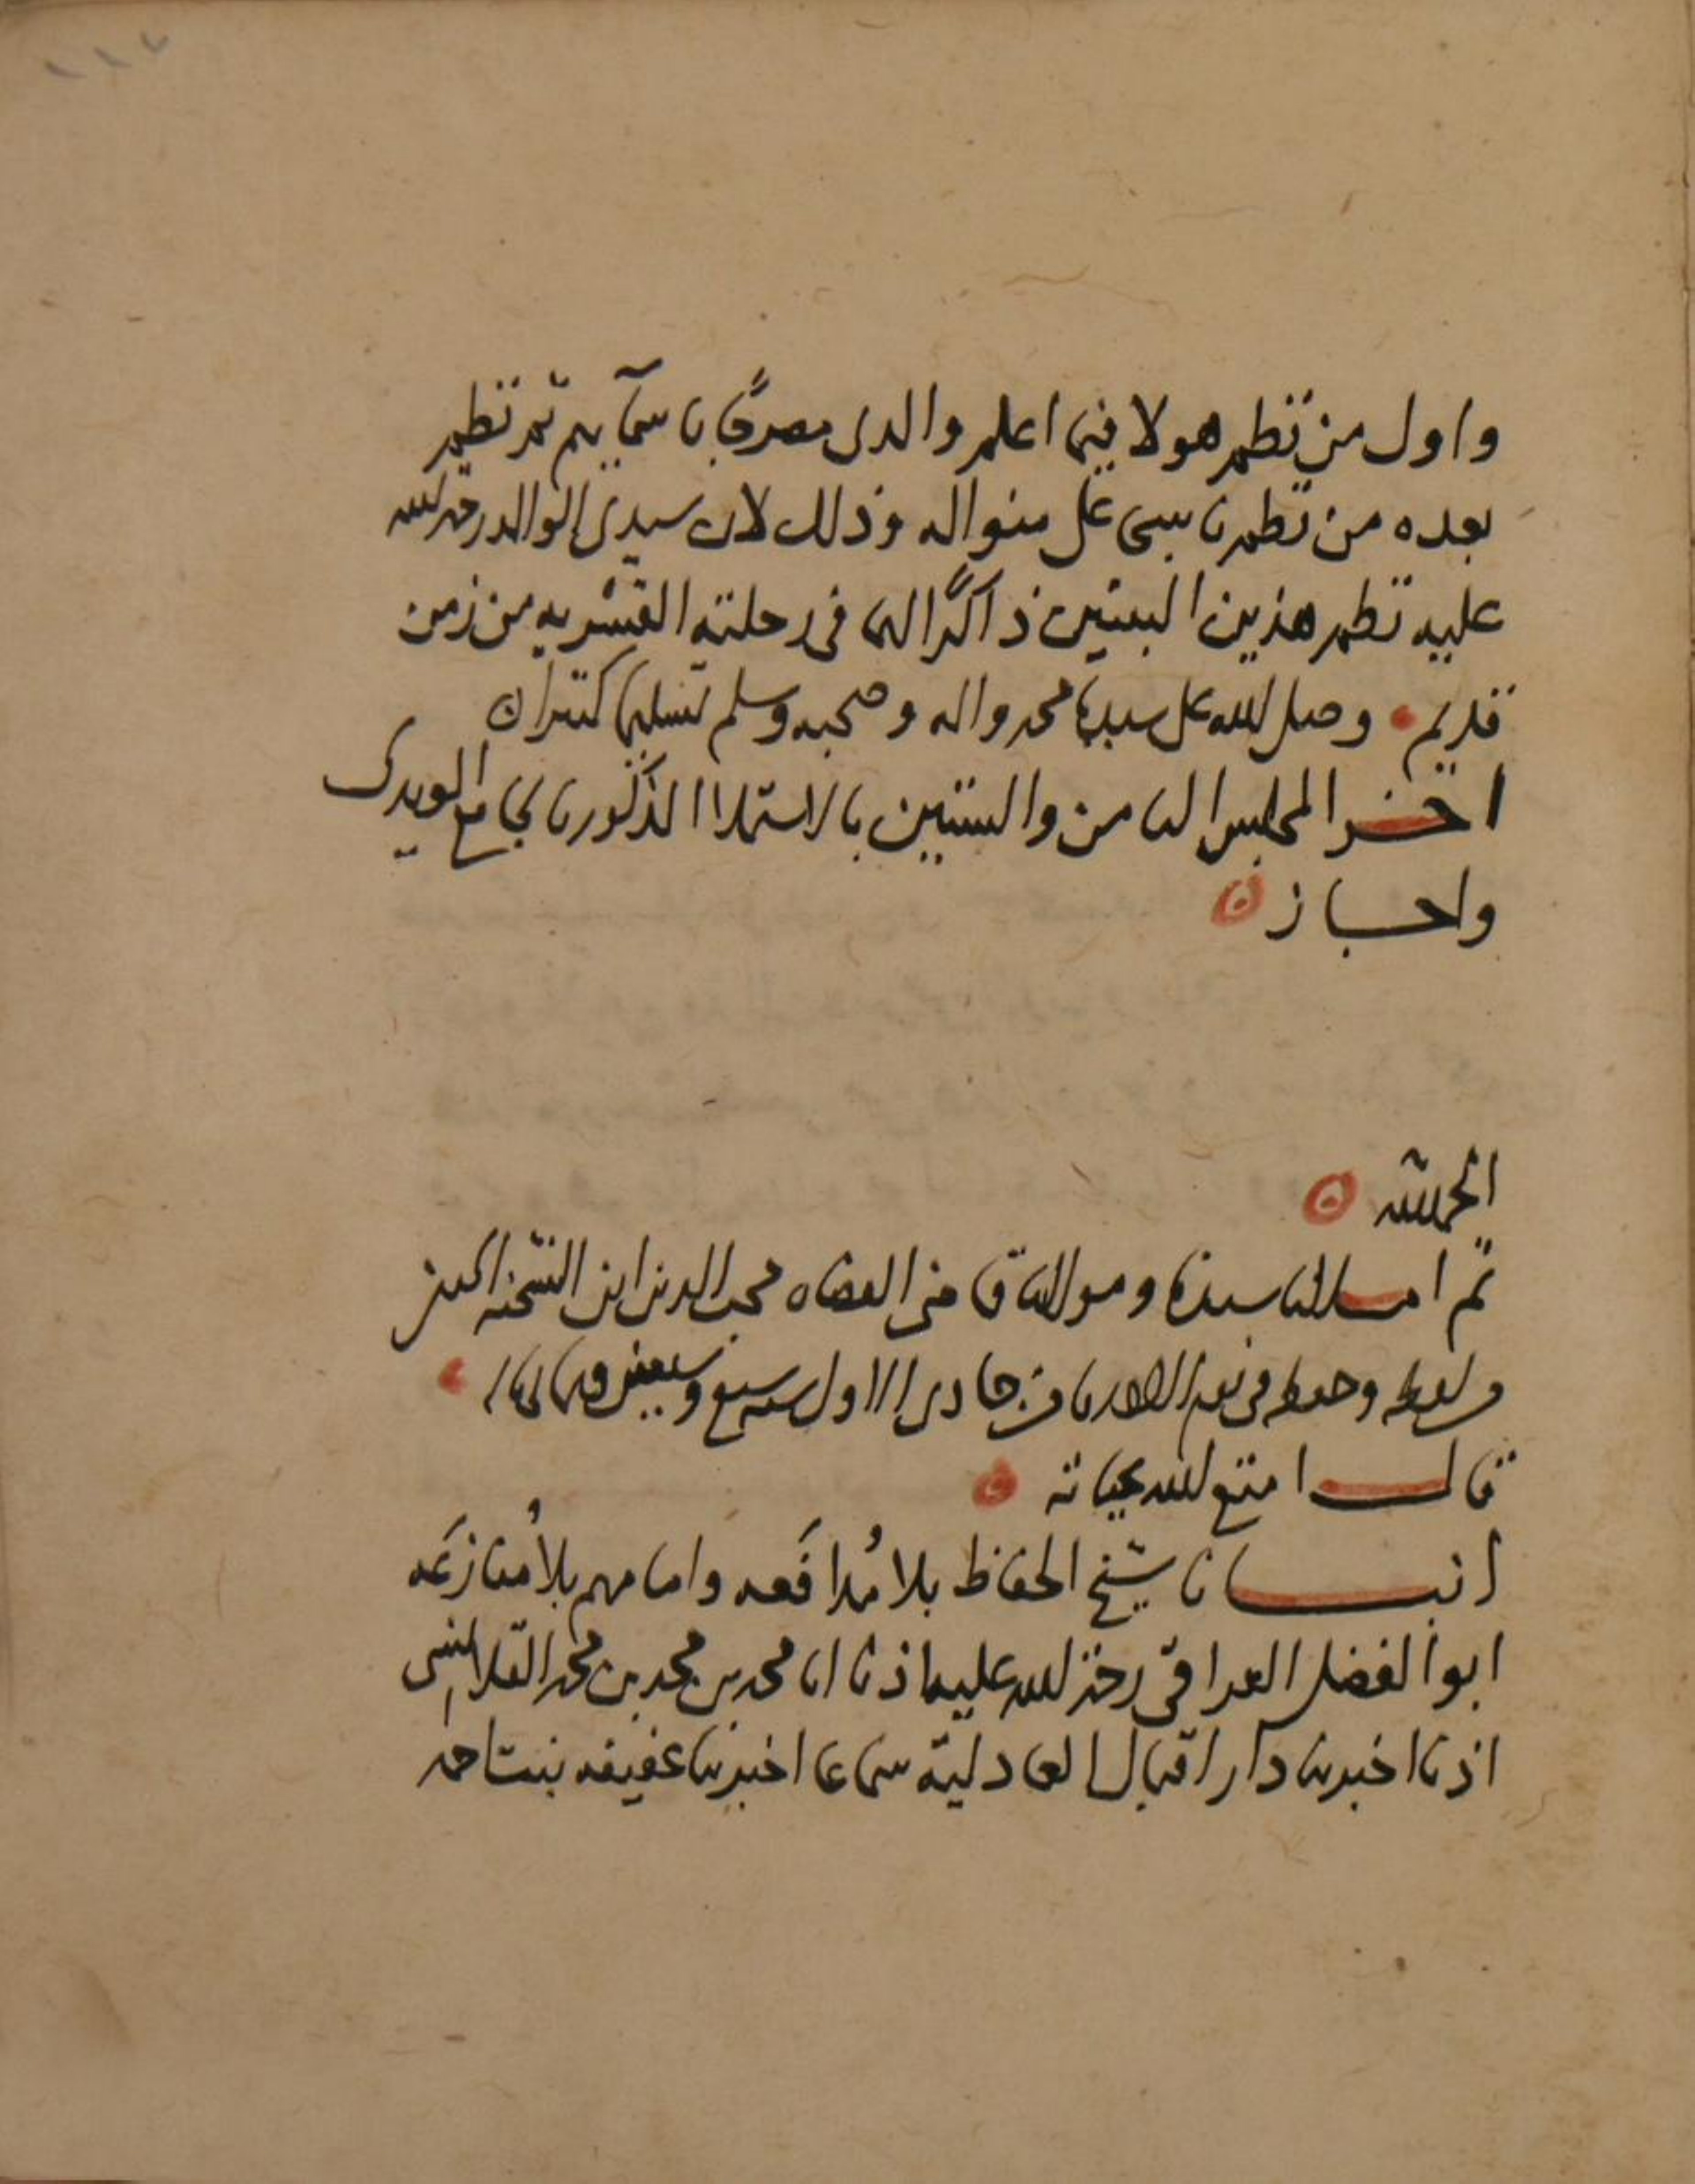 واول من نظم هولا فيما اعلم والدى مصرحًا باسمآيهم ثم نظم
بعده من نظم ناسى على منواله وذلك لان سيدى الوالد رحمه الله
عليه نظم هذين البيتين ذاكرًا لهما فى رحلته القشريه من زمن
قديم وصلى الله على سيدنا محمد واله وصحبه وسلم تسليما كثيرا
اخر المجلس الثامن والستين بالاستملا المذكور بالجامع المويدى
واجاز
الحمد لله
ثم املا لنا سيدنا ومولانا قاضى القضاه محب الدين ابن الشحنه الحنفى
من لفظه وحفظه فى يوم الاحد من جمادى الاول سنه سبع وسبعين وثمانمائة
قال امتع الله بحياته
انبانا شيخ الحفاظ بلا مُدافَعه وامامهم بلا مُنازَعَه
ابو الفضل العراقى رحمة الله عليه اذنا انا محمد بن محمد بن محمد القلانسى
اذنا اخبرتنا دار اقبال العادلية سماعا اخبرتنا عفيفه بنت احمد